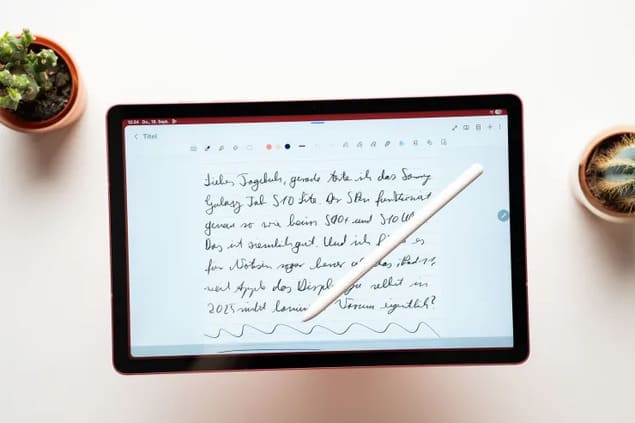 12:24 Do., 18. Sept.
Titel
Liebes Tagebuch, gerade teste ich das Samsung
Galaxy Tab S10 Lite. Der SPen funktioniert
genau so wie beim S10+ und S10 Ul
Das ist ziemlich gut. Und ich es
für Notizen sogar besser als das iPad 11,
weil Apple das Display selbst in
2025 nicht Warum eigentlich?